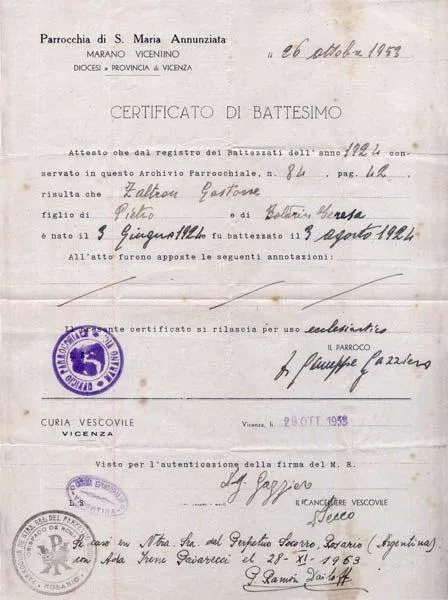 Parrocchia di S. Maria Annunziata
MARANO VICENTINO
DIOCESI e PROVINCIA di VICENZA
26 ottobre 1953
CERTIFICATO DI BATTESIMO
Attesto che dal registro dei Battezzati dell'anno 1924 con-
servato in questo Archivio Parrocchiale, n. 84. pag. 42.
risulta che Zaltron Gastone
figlio di Pietro e di Teresa
è nato il 3 Giugno 1924 fu battezzato il 3 agosto 1924
All'atto furono apposte le seguenti annotazioni:
Il presente certificato si rilascia per uso ecclesiastico
IL PARROCO
Giuseppe
UFFICIO PARROCCHIALE
CURIA VESCOVILE
VICENZA
Vicenza, li 29 OTT. 1953
Visto per l'autenticazione della firma del M. R.
L. S.
IL CANCELLIERE VESCOVILE
Se casó en Ntra. Sra. del Perpetuo Socorro, Rosario (Argentina)
con Ada Irene el 28-XI-1953
P. Ramón
PARROQUIA DE NTRA. SRA. DEL PERPETUO
OBISPADO DE ROSARIO
ROSARIO